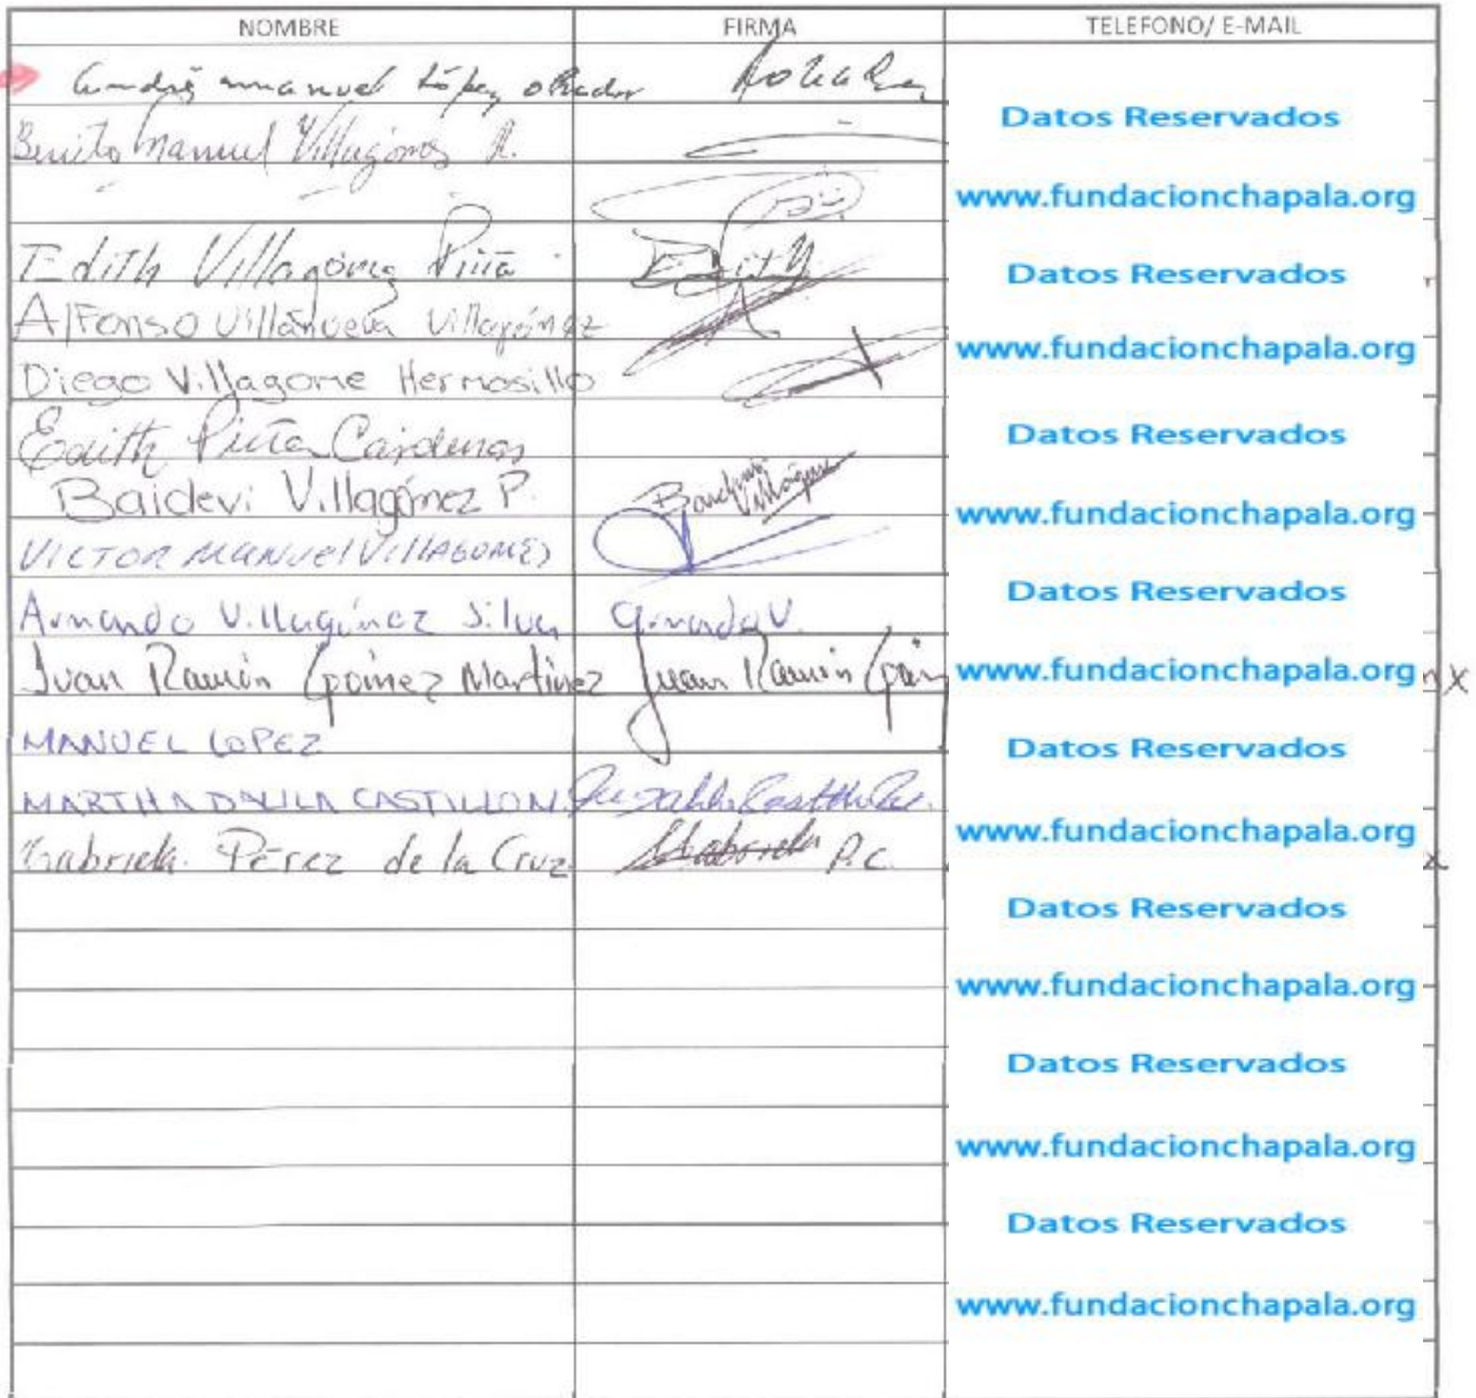 NOMBRE FIRMA TELEFONO/ E-MAIL
Andrés manuel López obrador
Datos Reservados
Benito Manuel Villagómez R.
www.fundacionchapala.org
Edith Villagómez Piña Edith
Datos Reservados
Alfonso Villanueva Villagómez
www.fundacionchapala.org
Diego Villagome Hermosillo
Edith Piña Cárdenas
Datos Reservados
Baidevi Villagómez P. Baidevi Villagómez
www.fundacionchapala.org
VICTOR MANUEL VILLAGOMEZ
Datos Reservados
Armando Villagómez Silva Armando V.
Juan Ramón Gpómez Martínez Juan Ramón
www.fundacionchapala.org x
MANUEL LOPEZ
Datos Reservados
MARTHA DALILA CASTILLON
www.fundacionchapala.org
Gabriela Pérez de la Cruz Gabriela P.C.
x
Datos Reservados
www.fundacionchapala.org
Datos Reservados
www.fundacionchapala.org
Datos Reservados
www.fundacionchapala.org